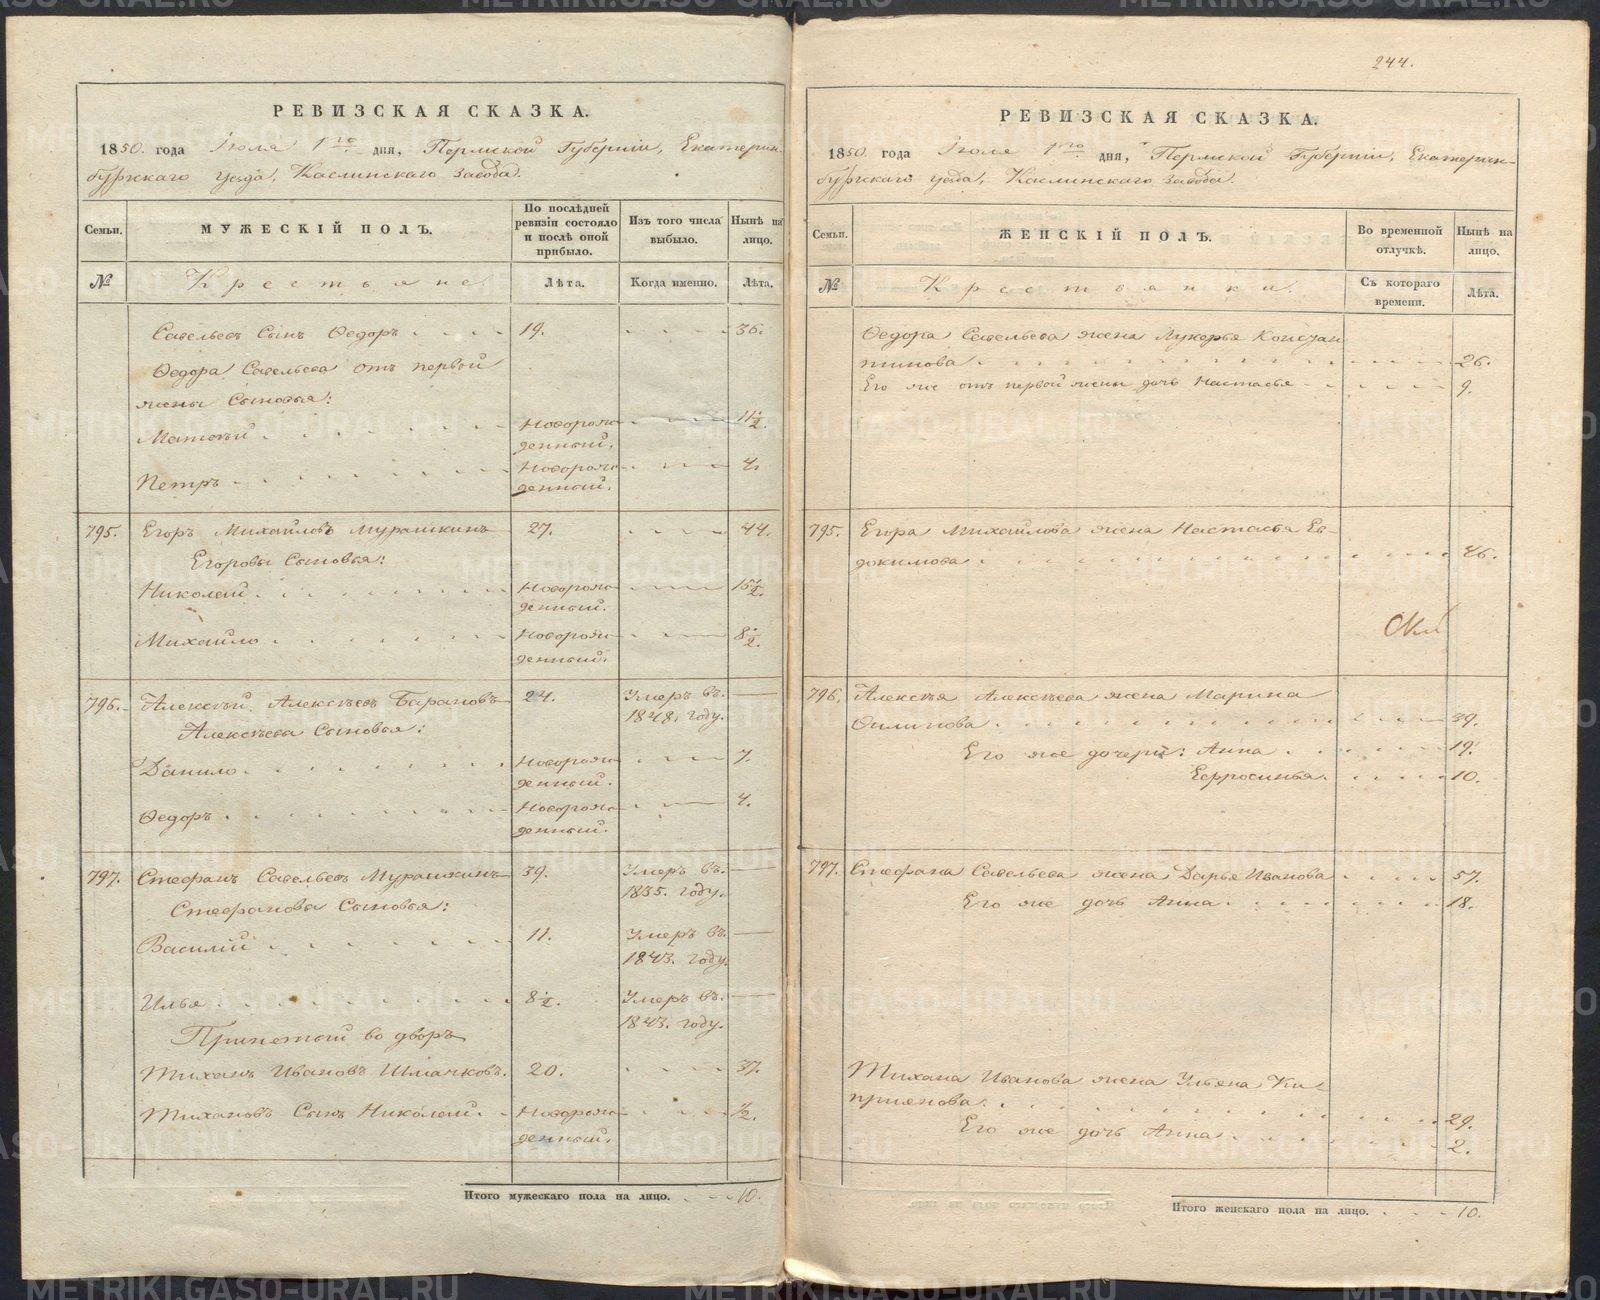 РЕВИЗСКАЯ СКАЗКА.
1850. года Іюля 1го дня, Пермской Губерніи, Екатерин-
бургскаго уезда, Каслинскаго Завода.
Семьи. МУЖЕСКІЙ ПОЛЪ. По послѣдней ревизіи состояло и послѣ оной прибыло. Изъ того числа выбыло. Нынѣ на лицо.
№ Крестьяне Лѣта. Когда именно. Лѣта.
Савельевъ Сынъ Ѳедоръ 19. 36.
Ѳедора Савельева отъ первой
жены Сыновья:
Матвѣй Новорож- 11½.
денный.
Петръ Новорож- 4.
денный.
795. Егоръ Михайловъ Мурашкинъ 27. 44.
Егоровы Сыновья:
Николай Новорож- 15½.
денный.
Михайло Новорож- 8½.
денный.
796. Алексѣй Алексѣевъ Барановъ 24. Умеръ въ
1848. году.
Алексѣева Сыновья:
Данило Новорож- 7.
денный.
Ѳедоръ Новорож- 4.
денный.
797. Стефанъ Савельевъ Мурашкинъ 39. Умеръ въ
1835. году.
Стефановы Сыновья:
Василій 11. Умеръ въ
1843. году.
Илья 8½. Умеръ въ
1843. году.
Принятый во дворъ
Тиханъ Ивановъ Шмачковъ. 20. 37.
Тихановъ Сынъ Николай. Новорож- ½.
денный.
Итого мужескаго пола на лицо. 10.
244.
РЕВИЗСКАЯ СКАЗКА.
1850. года Іюля 1го дня, Пермской Губерніи, Екатерин-
бургскаго уезда, Каслинскаго Завода.
Семьи. ЖЕНСКІЙ ПОЛЪ. Во временной отлучкѣ. Нынѣ на лицо.
№ Крестьянки. Съ котораго времени. Лѣта.
Ѳедора Савельева жена Лукерья Констан
тинова 26.
Его же отъ первой жены дочь Настасья 9.
795. Егора Михайлова жена Настасья Ев-
докимова 46.
796. Алексѣя Алексѣева жена Марина
Филипова 39.
Его же дочери: Анна 19.
Ефросинья. 10.
797. Стефана Савельева жена Дарья Иванова 57.
Его же дочь Анна 18.
Тихана Иванова жена Ульяна Ки-
приянова. 29.
Его же дочь Анна 2.
Итого женскаго пола на лицо. 10.
METRIKI.GASO-URAL.RU